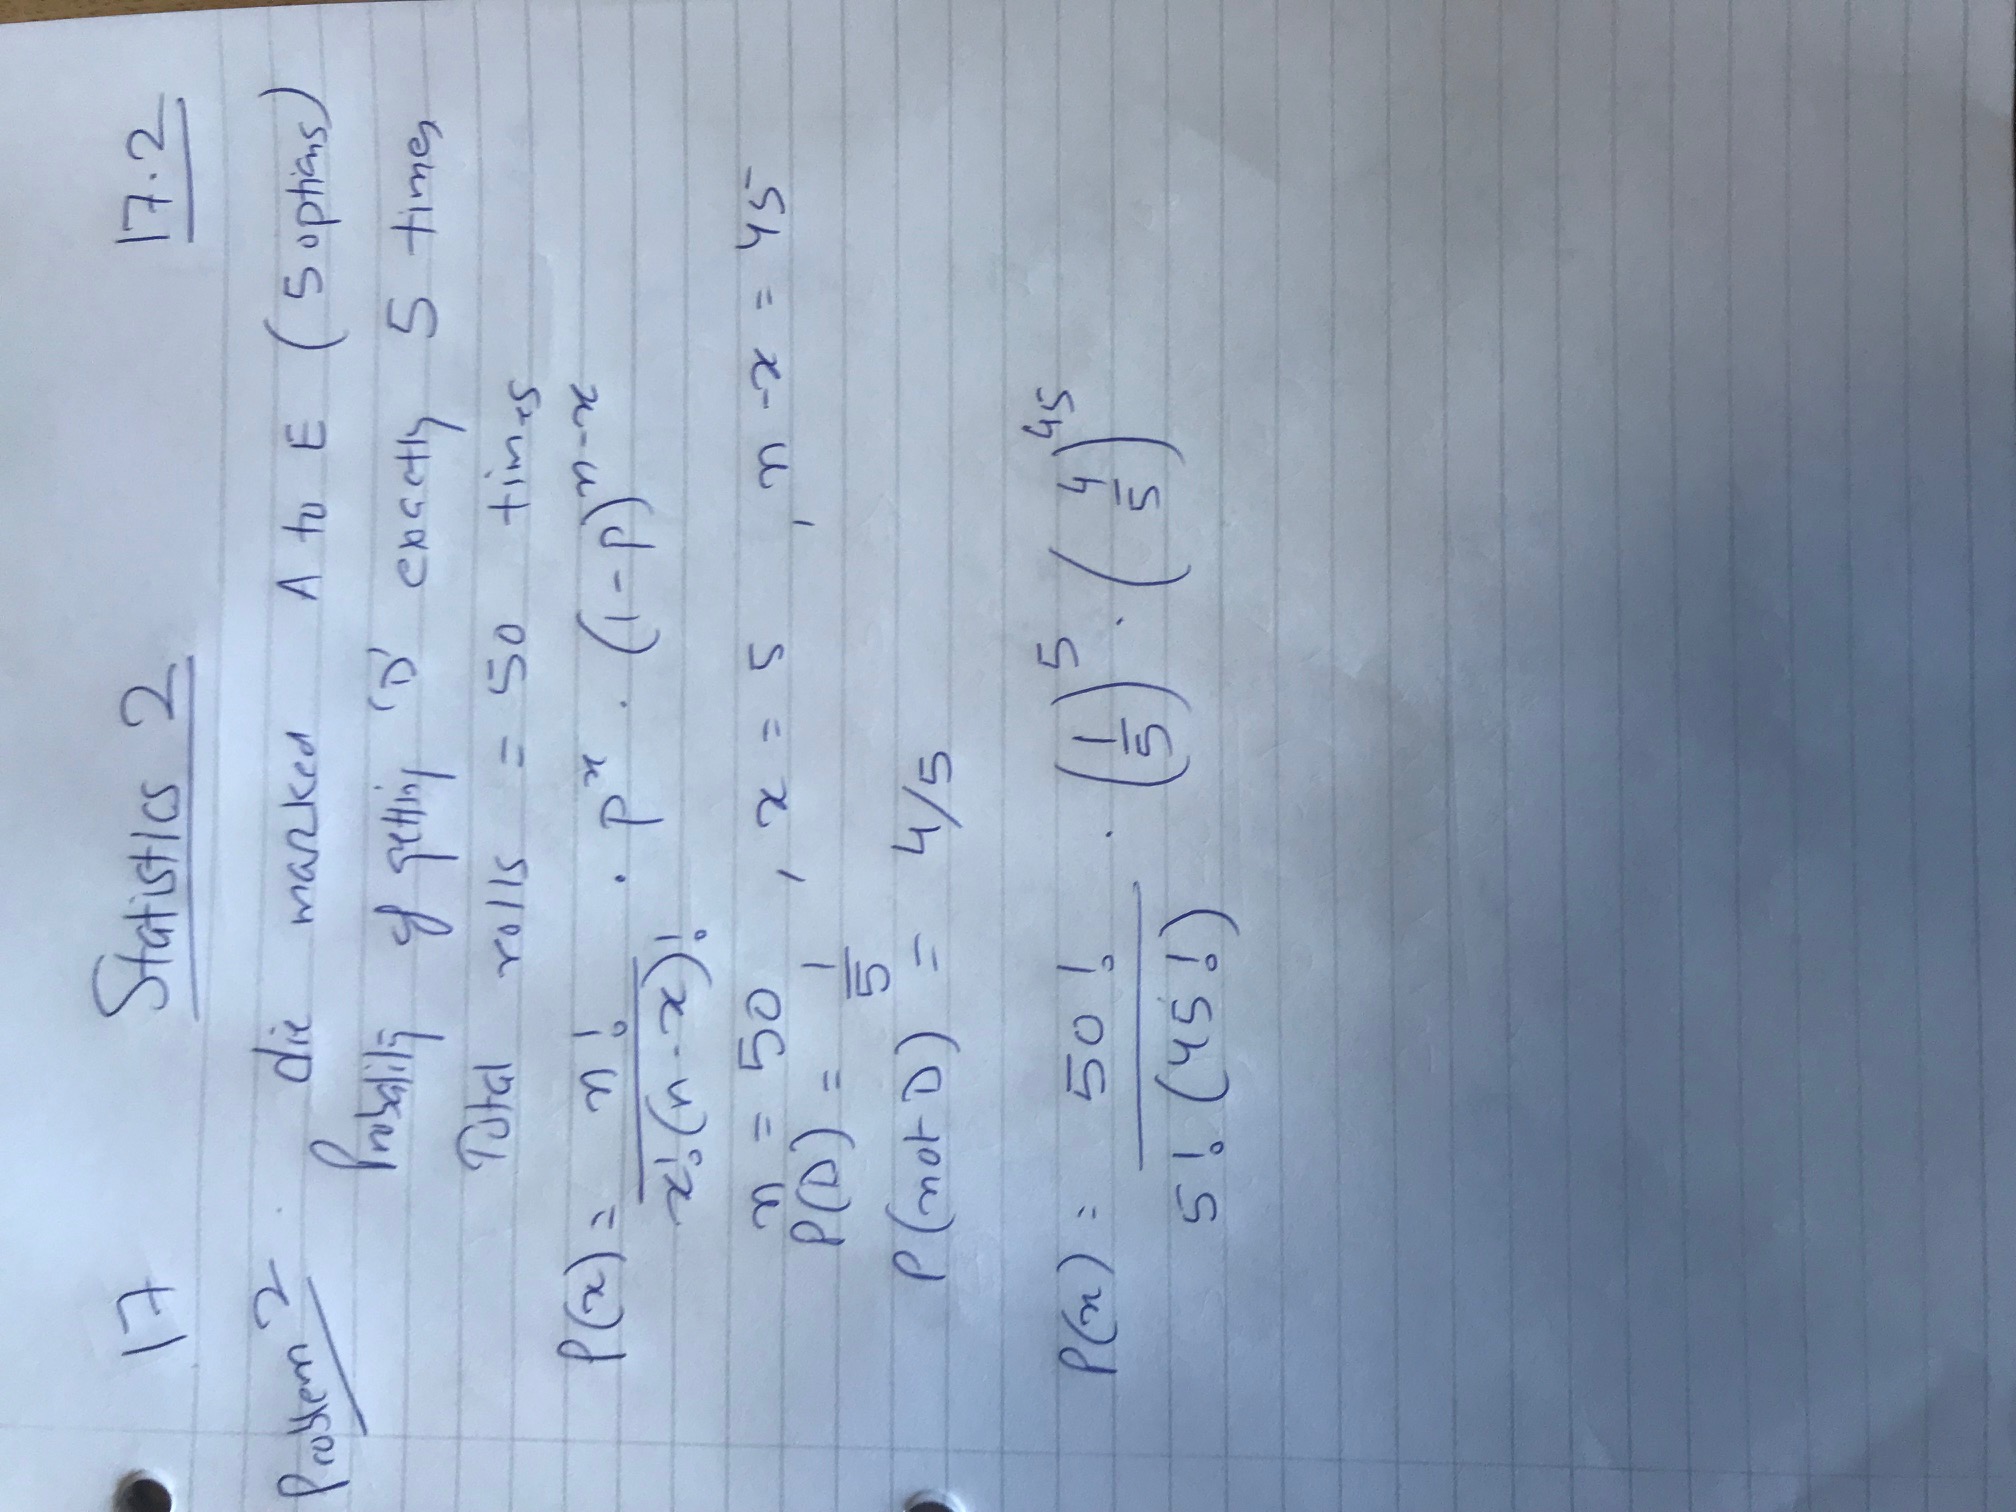 17 Statistics 2 17.2
Problem 2. die marked A to E (5 options)
Probability of getting 'D' exactly 5 times
Total rolls = 50 times
P(x) = n! / x!(n-x)! · p^x · (1-p)^n-x
n = 50 , x = 5 , n-x = 45
P(D) = 1/5
P(not D) = 4/5
P(x) = 50! / 5!(45!) · (1/5)^5 · (4/5)^45